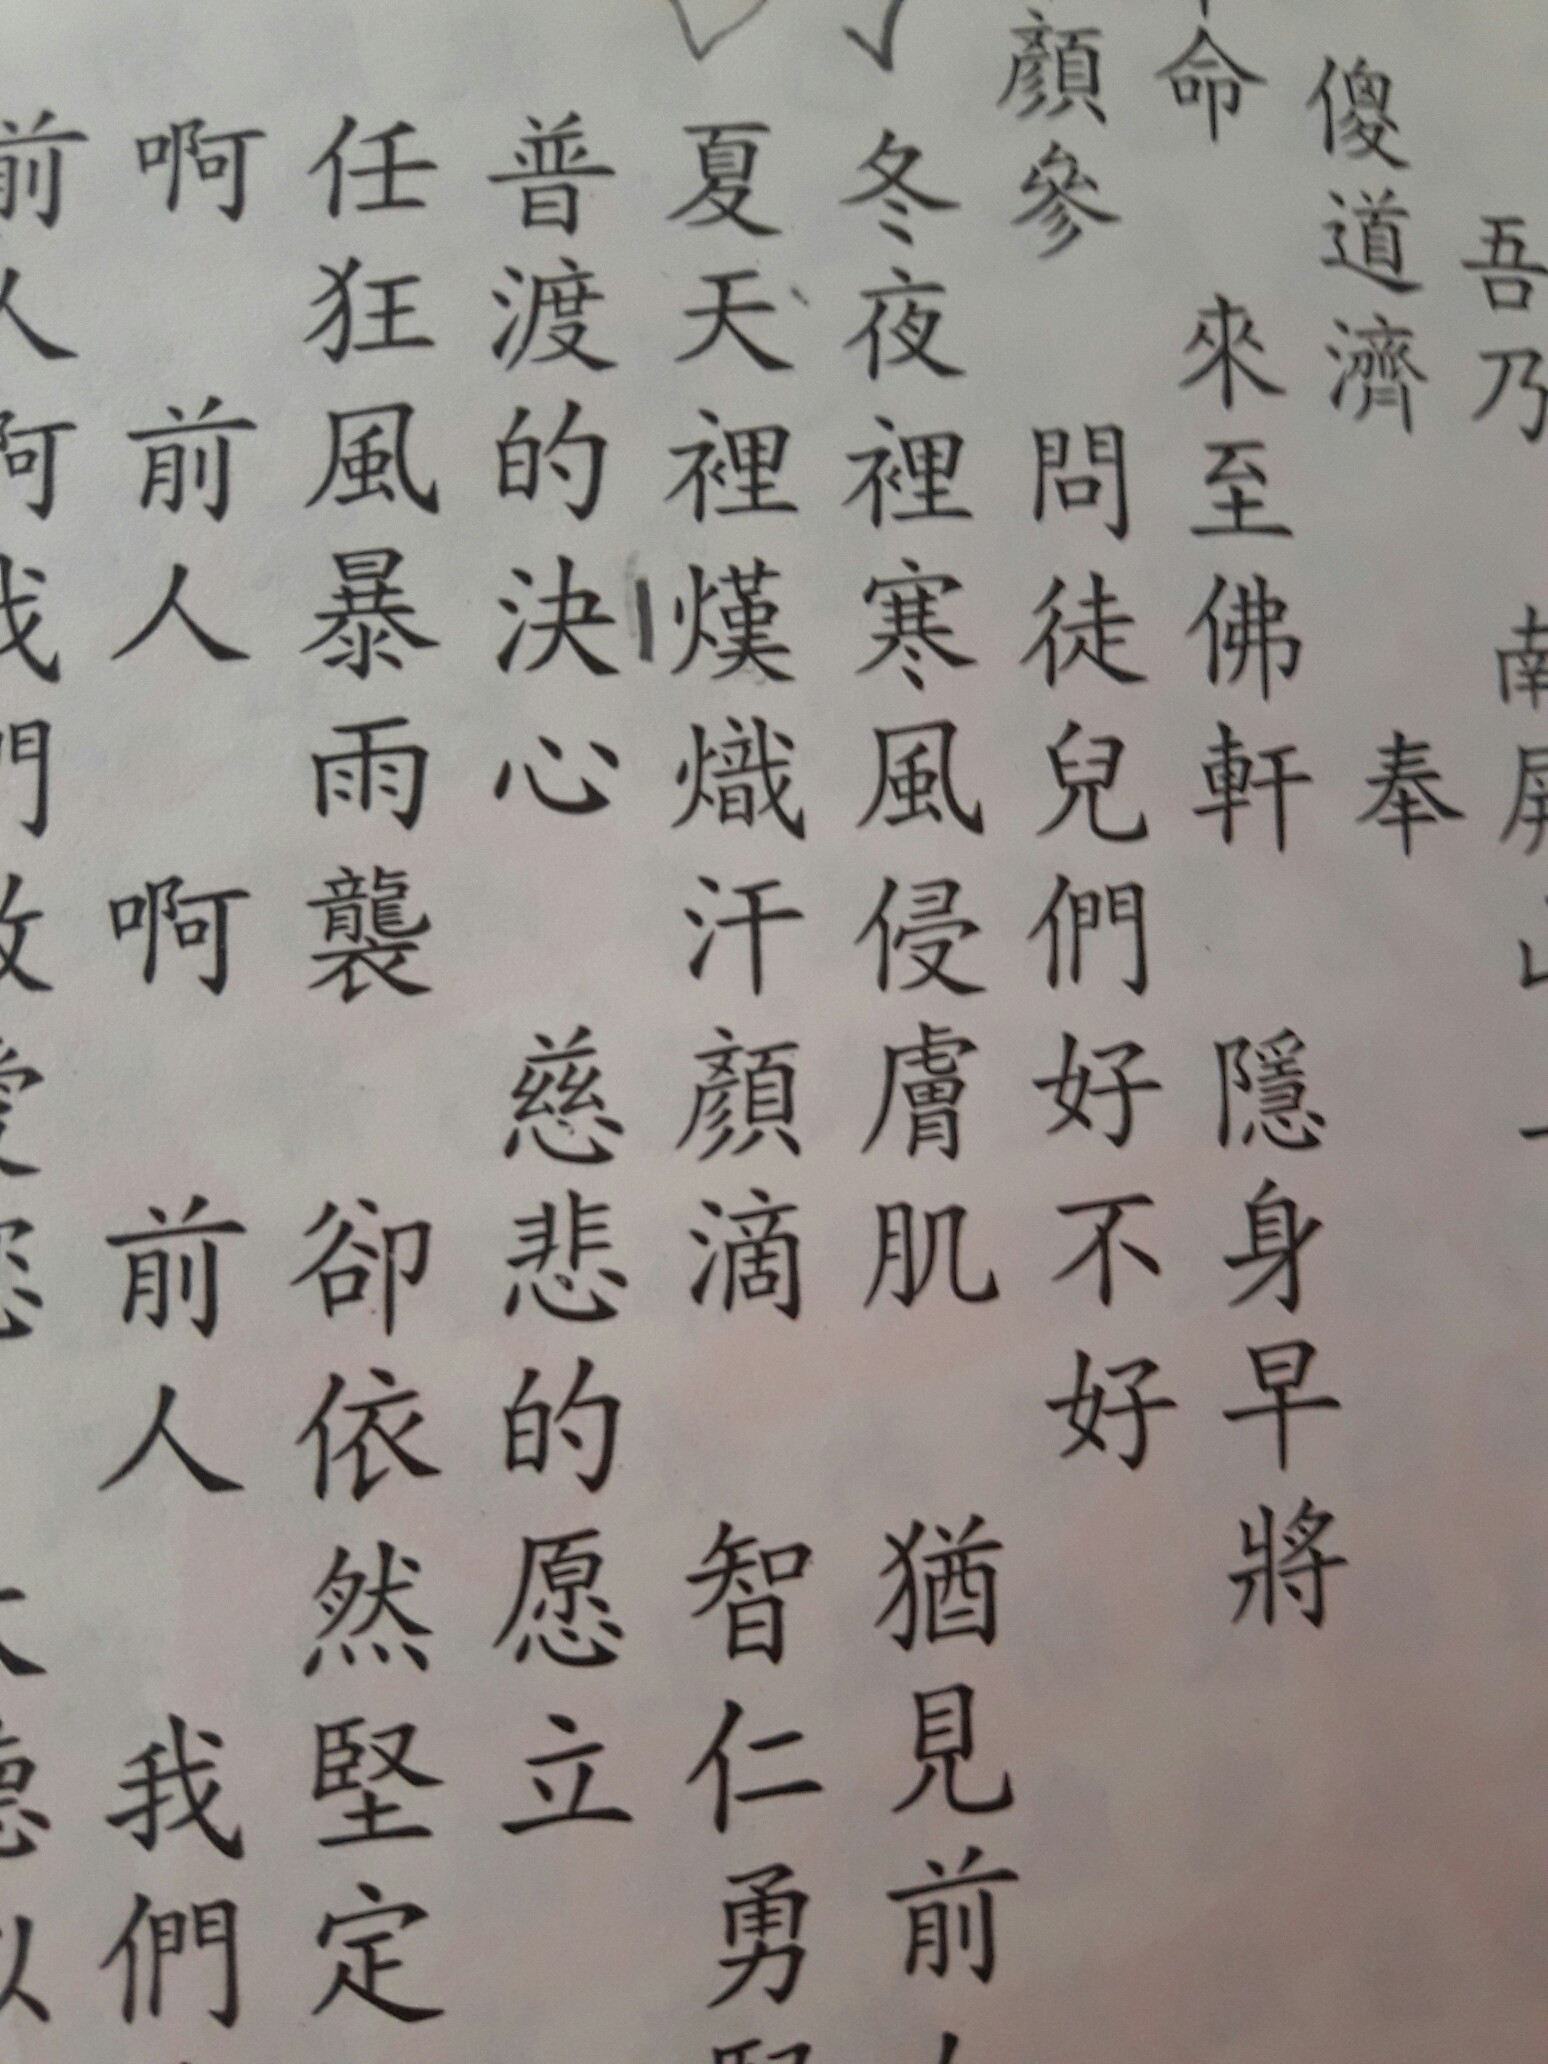 吾乃 南屏山
傻道濟 奉
命 來至佛軒 隱身早將
顏參 問徒兒們好不好
冬夜裡寒風侵膚肌 猶見前
夏天裡熯熾汗顏滴 智仁勇
普渡的決心 慈悲的愿立
任狂風暴雨襲 卻依然堅定
啊 前人 啊 前人 我們
前人啊我們敬愛您